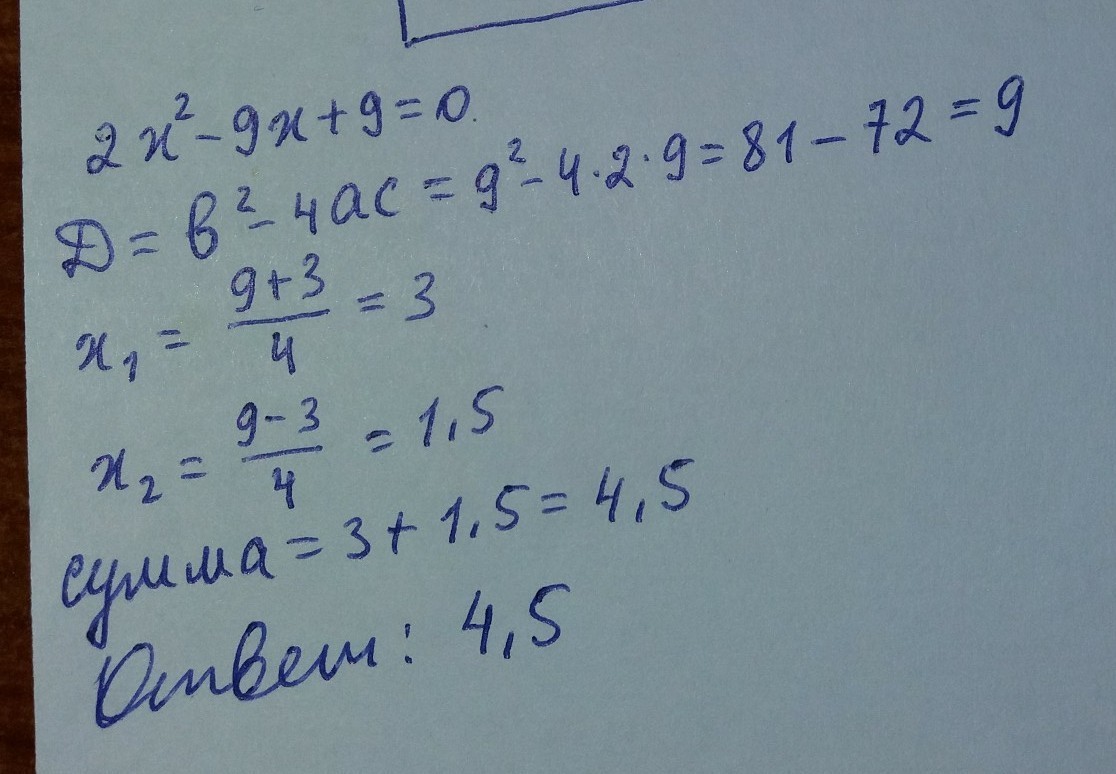 2x² - 9x + 9 = 0.
Д = в² - 4ac = 9² - 4·2·9 = 81 - 72 = 9
x₁ = (9+3)/4 = 3
x₂ = (9-3)/4 = 1,5
сумма = 3 + 1,5 = 4,5
Ответ: 4,5